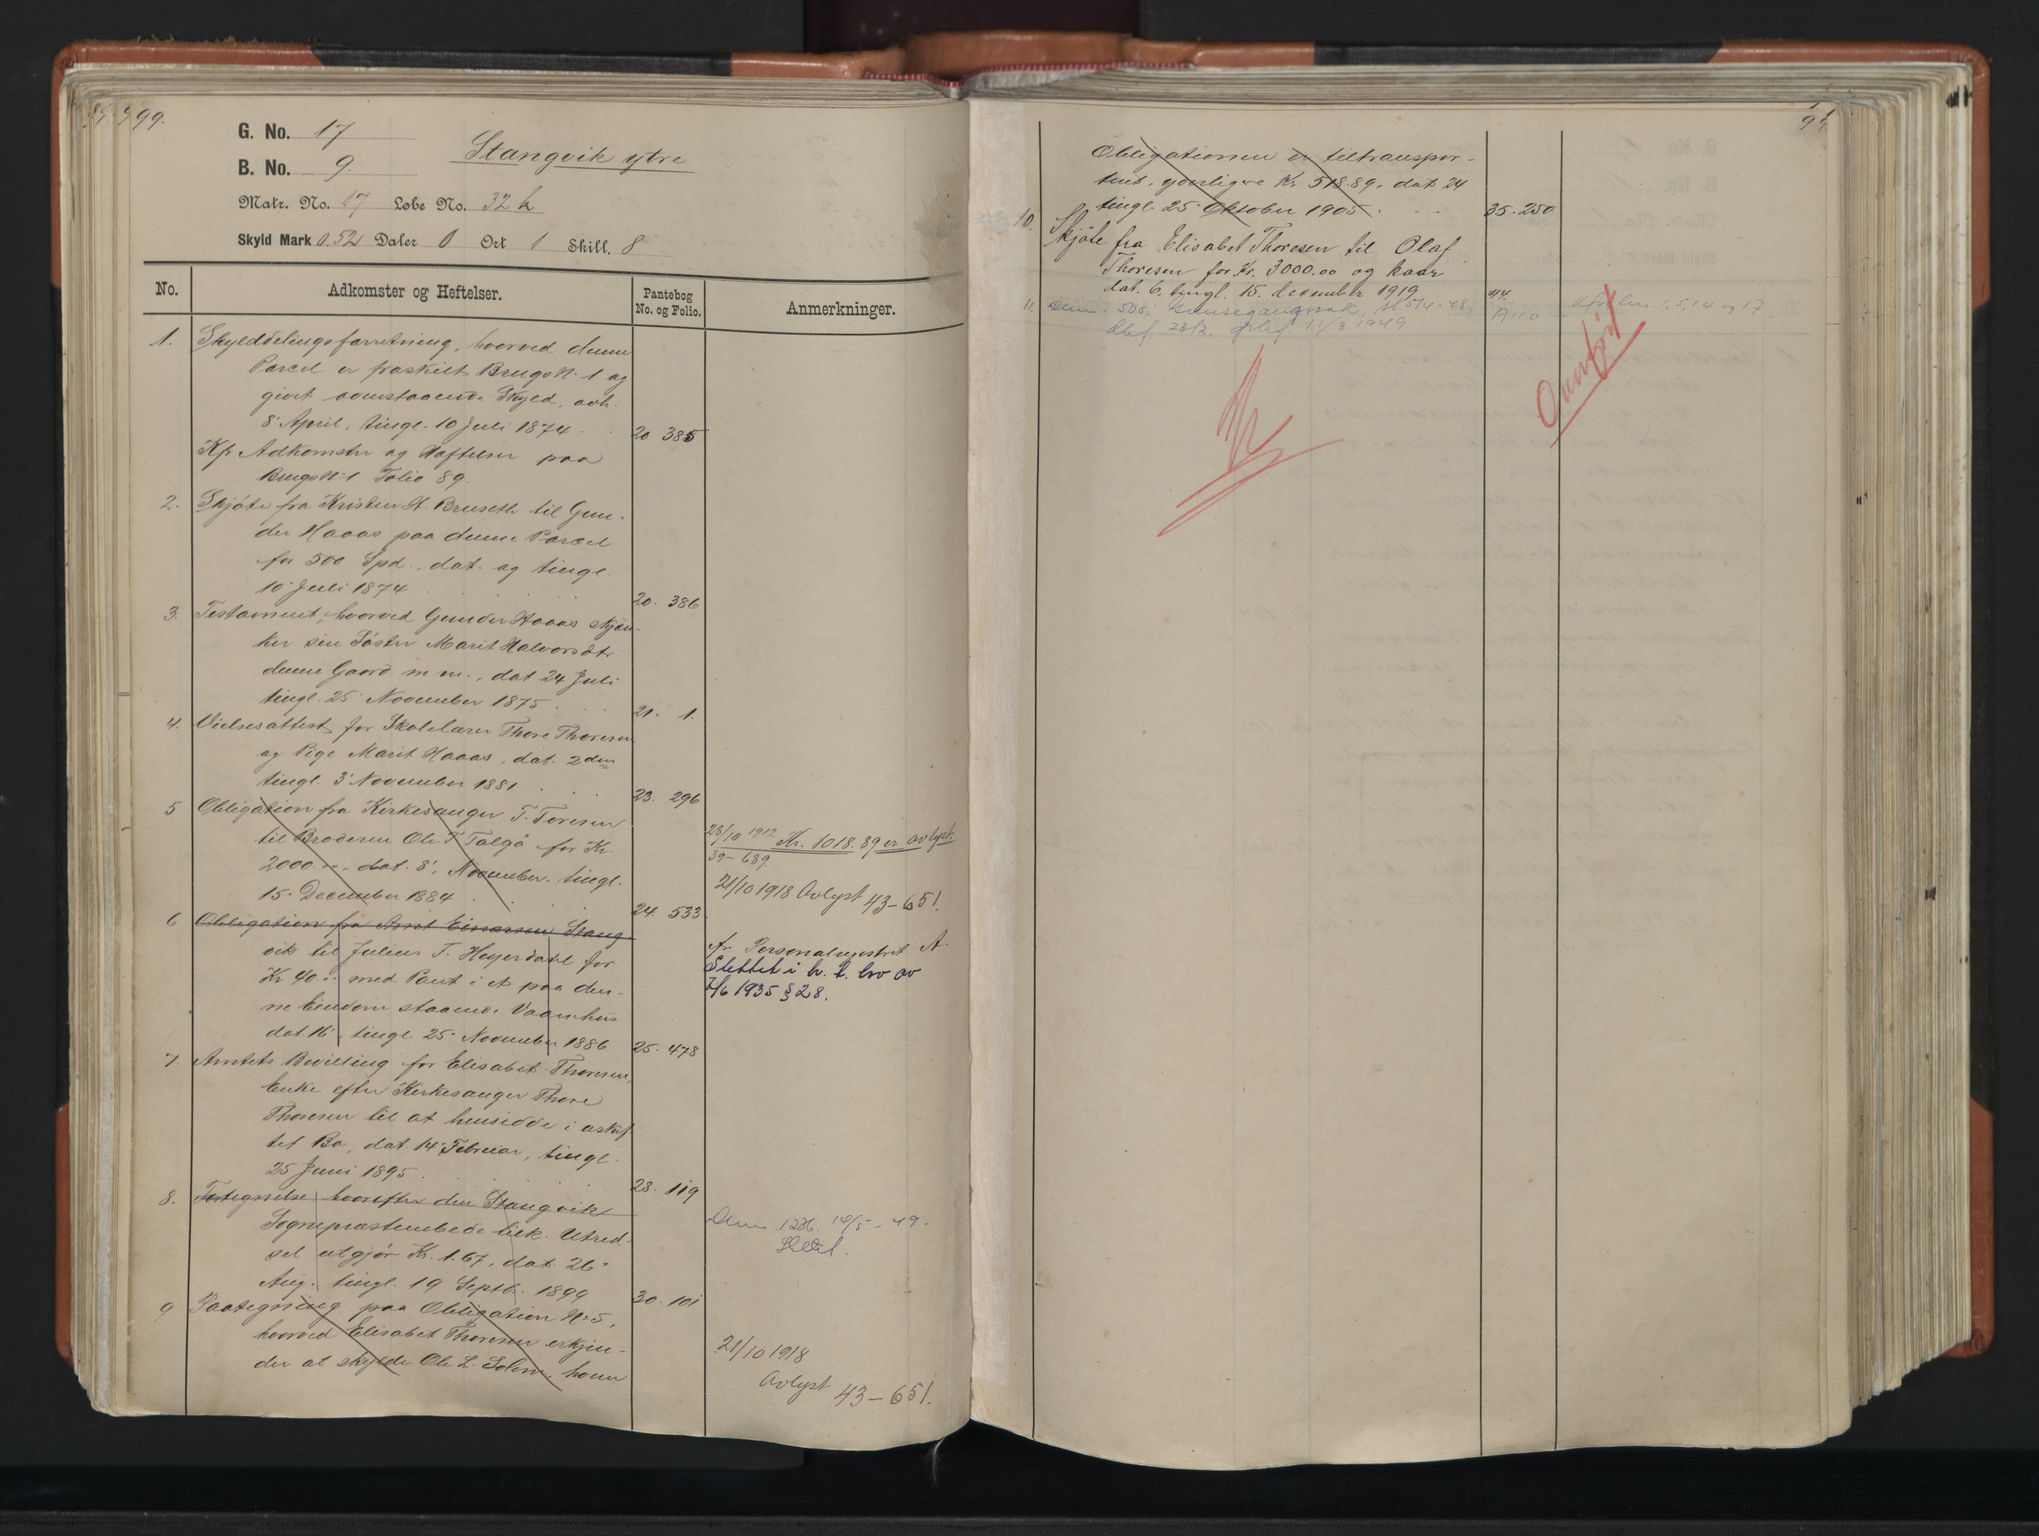 99.
G. No. 17
Stangvik ytre
B. No. 9.
Matr. No. 17 Løbe No. 32 h
Skyld Mark 0.52 Daler 0 Ort 1 Skill. 8
No. Adkomster og Heftelser. Pantebog No. og Folio. Anmerkninger.
1. Skylddelingsforretning, hvorved denne
Parcel er fraskilt Brugs N. 1 og
givet ovenstaaende Skyld, avh.
8 April, tingl. 10 Juli 1874. 20 385
Kfr Adkomster og Hæftelser paa
Brugs N. 1 Folio 89.
2. Skjøte fra Kristen H. Bruseth til Gun-
der Haaas paa denne Parcel
for 500 Spd., dat. og tingl.
10 Juli 1874 20. 386
3. Testament, hvorved Gunder Haaas skjæn-
ker sin Søster Marit Halvorsdtr.
denne Gaard m m., dat 24 Juli
tingl. 25 November 1875 21. 1.
4. Vielsesattest for Skolelærer Thore Thoresen
og Pige Marit Haaas, dat. 2den
tingl. 3 November 1881 23. 296
5 Obligation fra Kirkesanger T. Toresen
til Broderen Ole T Talgø for Kr.
2000 , dat. 8, November, tingl.
15. December 1884 24. 533
28/10 1912 Kr. 1018.89 er avlyst.
39-689
21/10 1918 Avlyst 43-651.
6 Obligation fra Arnt Einarsen Stang
vik til Julius T. Heyerdahl for
Kr 40 med Pant i et paa den-
ne Eiendom staaende Vaanhus
dat 16, tingl. 25 November 1886 25. 478
Av Personalregistret A.
Slettet i h. t. lov av
7/6 1935 § 28.
7. Amtets Bevilling for Elisabet Thoresen,
Enke efter Kirkesanger Thore
Thoresen til at hensidde i uskif
tet Bo, dat. 14 Februar, tingl.
25 Juni 1895 28. 119
8. Fortegnelse hvorefter den Stangvik
Sognepræstembede tilk. Utred-
sel utgjør Kr. 1.67, dat. 26
Aug. tingl. 19 Septb. 1899 30. 101
14/5. 49.
Slettet.
9 Paategning paa Obligation N. 5,
hvorved Elisabet Thoresen erkjen-
der at skylde Ole L. Solem, hvem
21/10 1918
Avlyst 43-651.
Obligationen er tiltranspor-
tert, yderligere Kr. 518.89, dat 24
tingl. 25 Oktober 1905. 35. 250
10. Skjøte fra Elisabet Thoresen til Olaf
Thoresen for Kr. 3000.00 og kaar
dat. 6, tingl. 15. december 1919 44.
11. 505. Grensegangssak,
1949
Overført